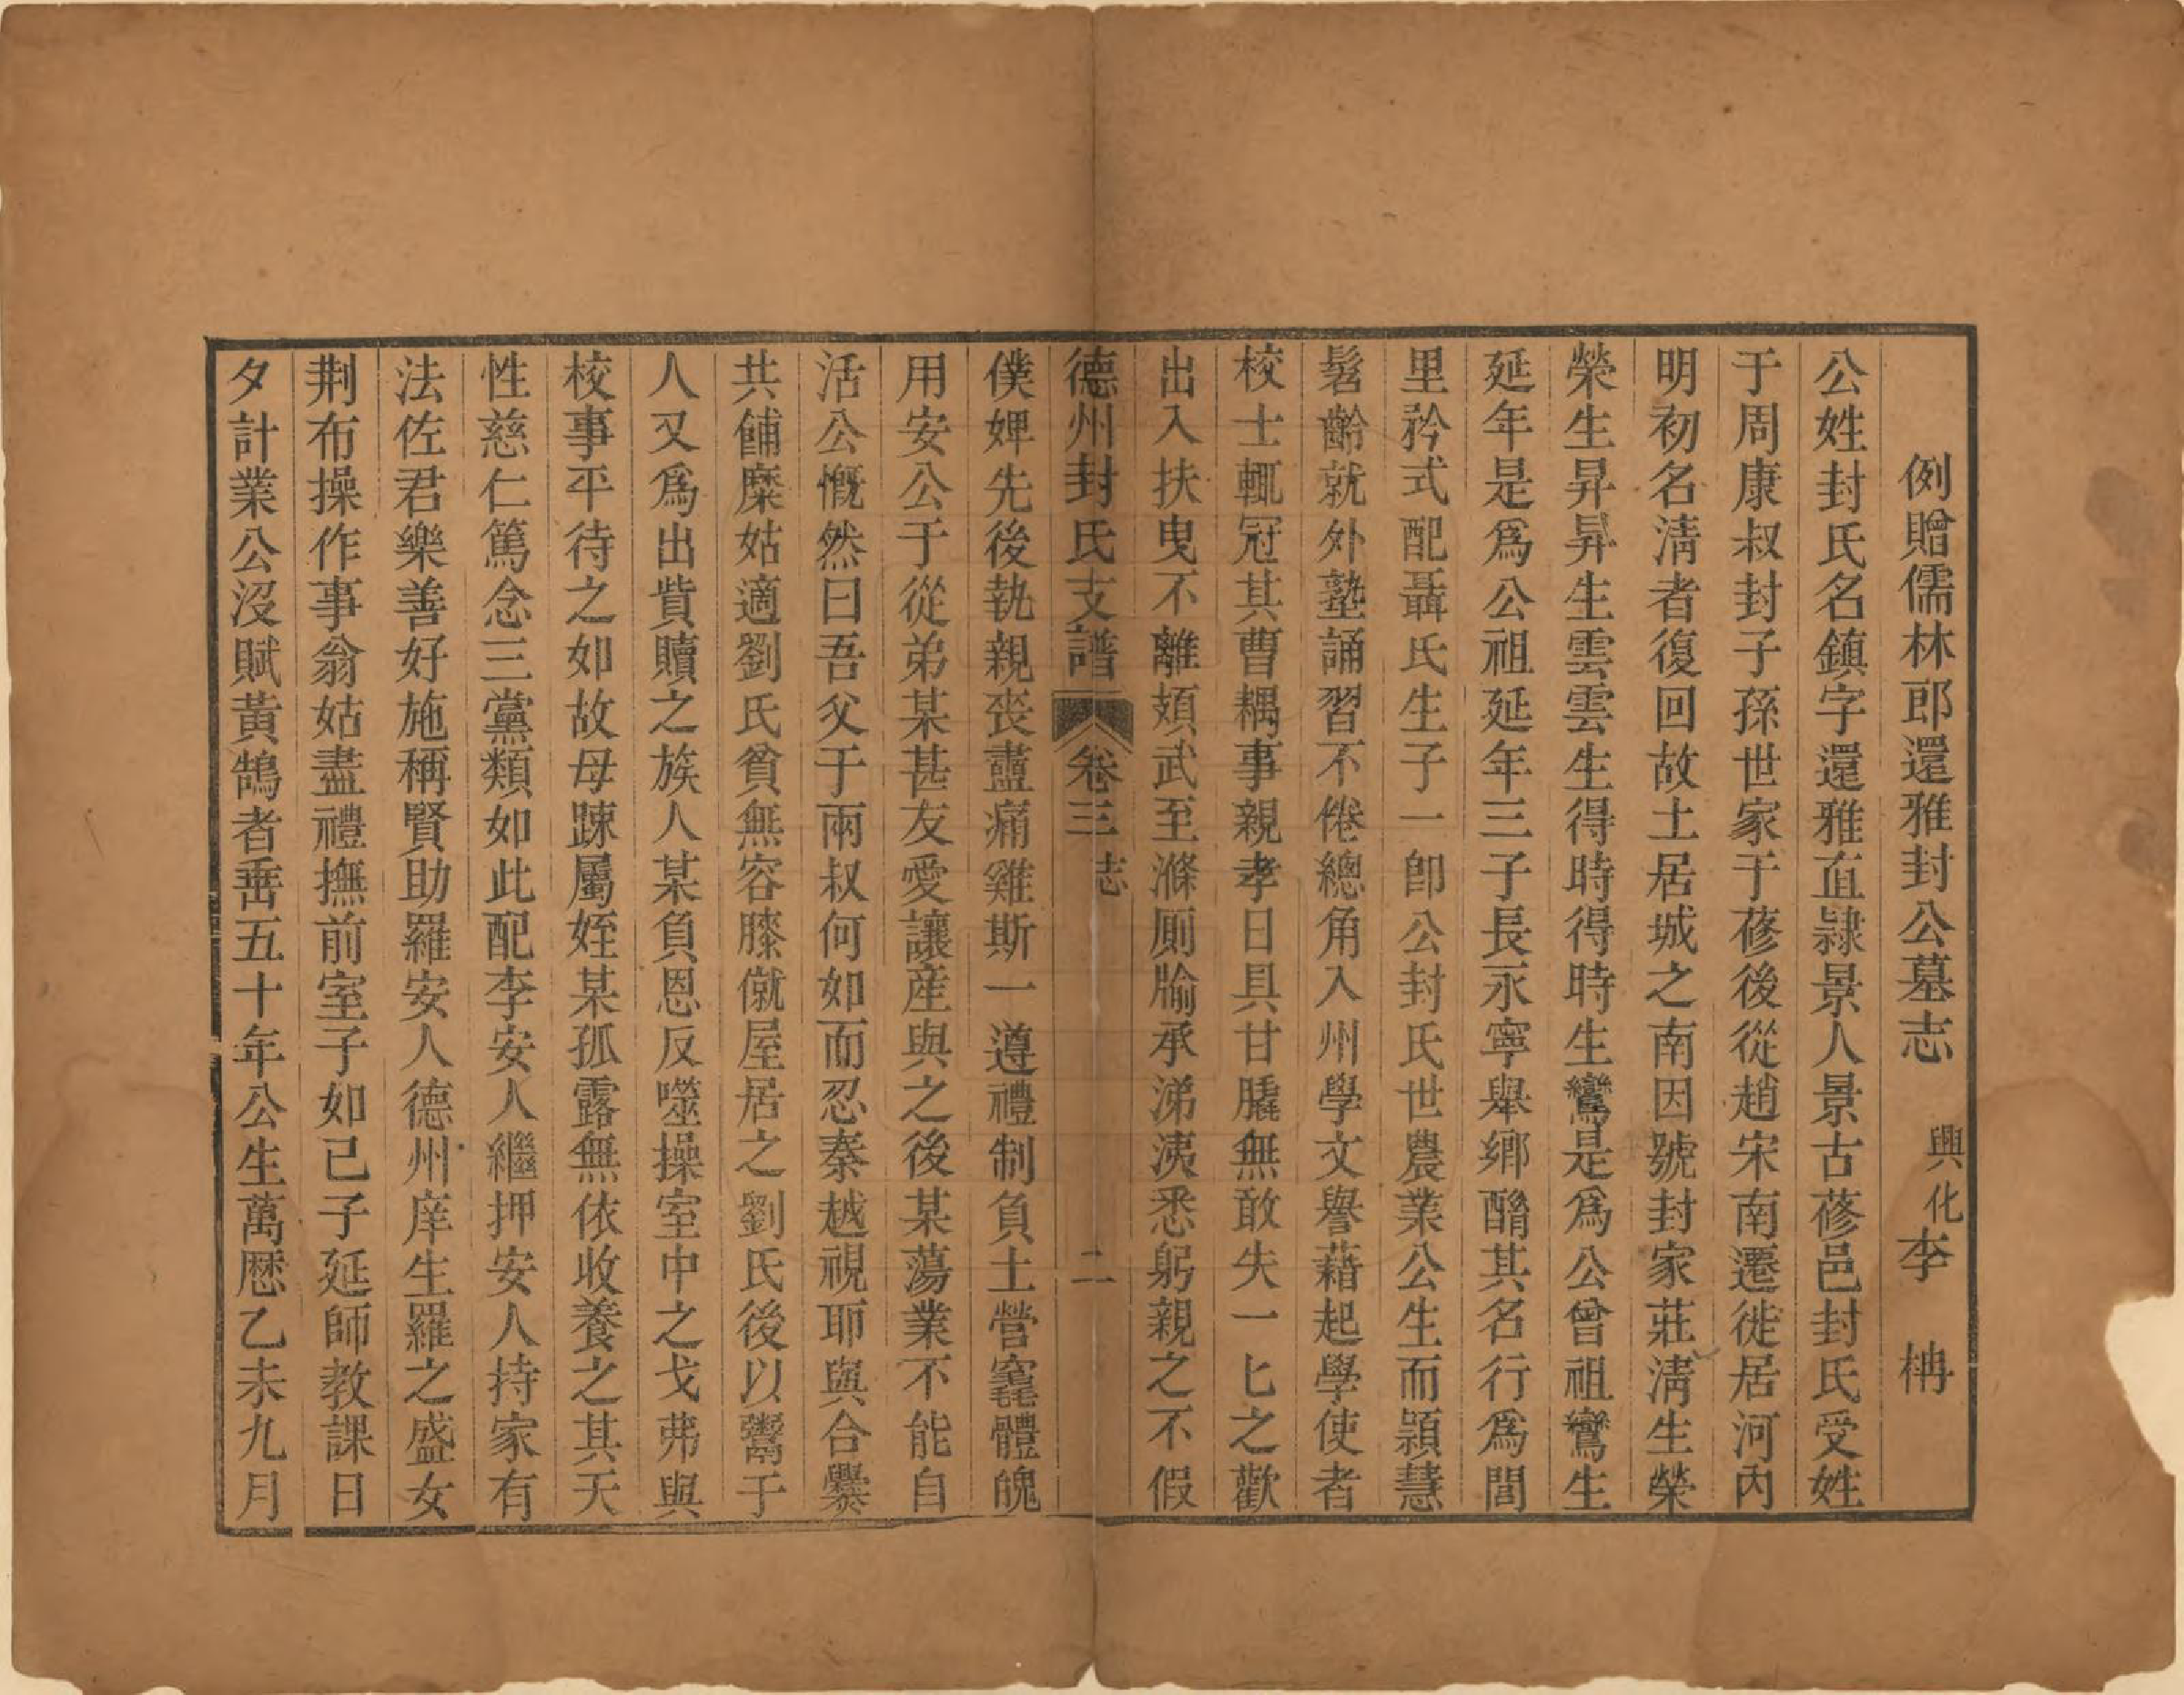 例贈儒林郎還雅封公墓志　興化李　枏
公姓封氏名鎮字還雅直隸景人景古蓨邑封氏受姓
于周康叔封子孫世家于蓨後從趙宋南遷徙居河內
明初名淸者復回故土居城之南因號封家莊淸生榮
榮生昇昇生雲雲生得時得時生鸞是爲公曾祖鸞生
延年是爲公祖延年三子長永寧舉鄉酳其名行爲閭
里矜式配聶氏生子一卽公封氏世農業公生而穎慧
髫齡就外塾誦習不倦總角入州學文譽藉起學使者
校士輒冠其曹耦事親孝日具甘膬無敢失一匕之歡
出入扶曳不離頍武至滌廁牏承涕洟悉躬親之不假
德州封氏支譜　卷三　志　二
僕婢先後執親喪盡痛雞斯一遵禮制負土營窀體魄
用安公于從弟某甚友愛讓產與之後某蕩業不能自
活公慨然曰吾父于兩叔何如而忍秦越視耶與合爨
共餔糜姑適劉氏貧無容膝僦屋居之劉氏後以鬻于
人又爲出貲贖之族人某負恩反噬操室中之戈弗與
校事平待之如故母踈屬姪某孤露無依收養之其天
性慈仁篤念三黨類如此配李安人繼押安人持家有
法佐君樂善好施稱賢助羅安人德州庠生羅之盛女
荆布操作事翁姑盡禮撫前室子如已子延師教課日
夕計業公沒賦黃鵠者垂五十年公生萬厯乙未九月